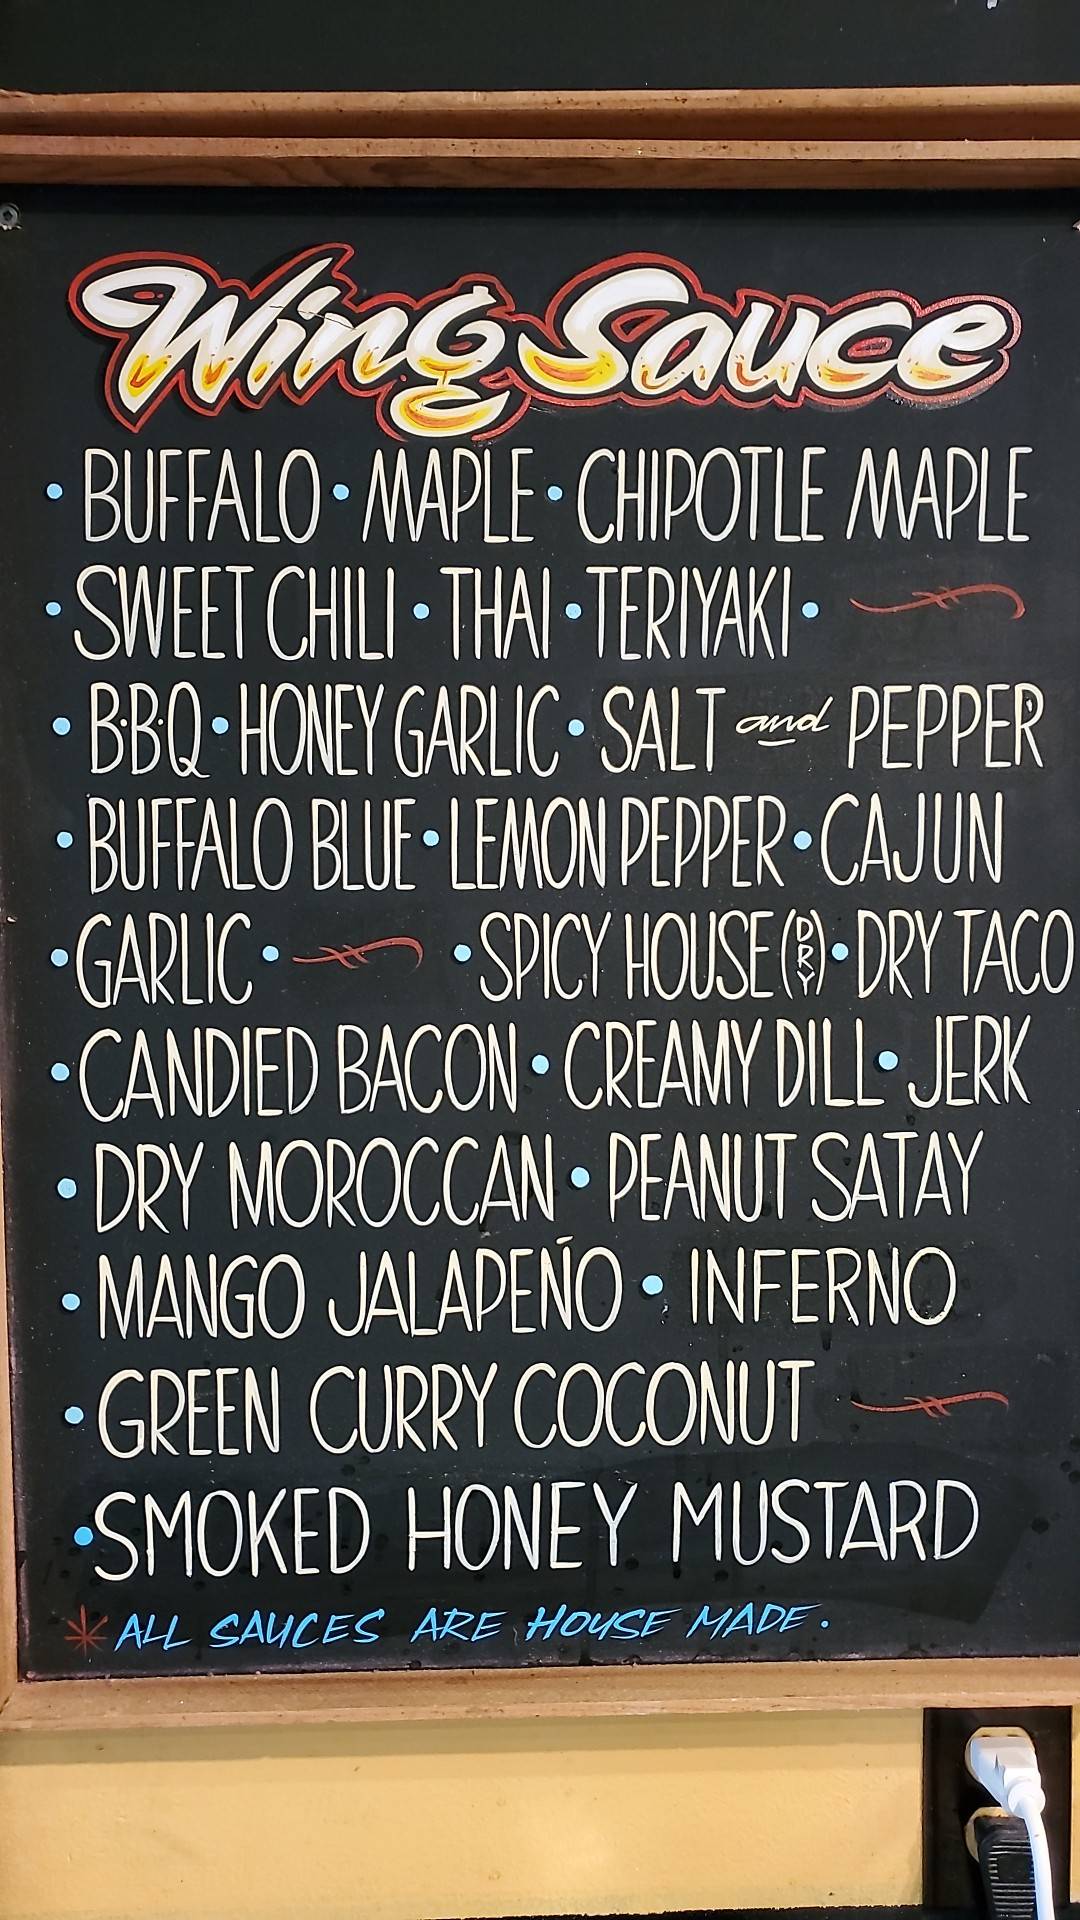 Wing Sauce
• BUFFALO • MAPLE • CHIPOTLE MAPLE
• SWEET CHILI • THAI • TERIYAKI •
• B·B·Q • HONEY GARLIC • SALT and PEPPER
• BUFFALO BLUE • LEMON PEPPER • CAJUN
• GARLIC • • SPICY HOUSE (DRY) • DRY TACO
• CANDIED BACON • CREAMY DILL • JERK
• DRY MOROCCAN • PEANUT SATAY
• MANGO JALAPEÑO • INFERNO
• GREEN CURRY COCONUT
• SMOKED HONEY MUSTARD
* ALL SAUCES ARE HOUSE MADE.